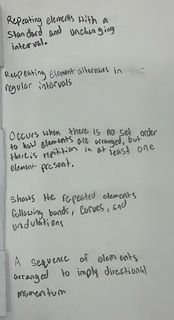 Repeating elements with a
Standard and unchanging
interval.
Reapeating element alternates in
regular intervals
Occurs when there is no set order
to how elements are arranged, but
there is repitition in at least one
element present.
Shows the repeated elements
following bends, curves, and
undulations
A sequence of elements
arranged to imply directional
momentum